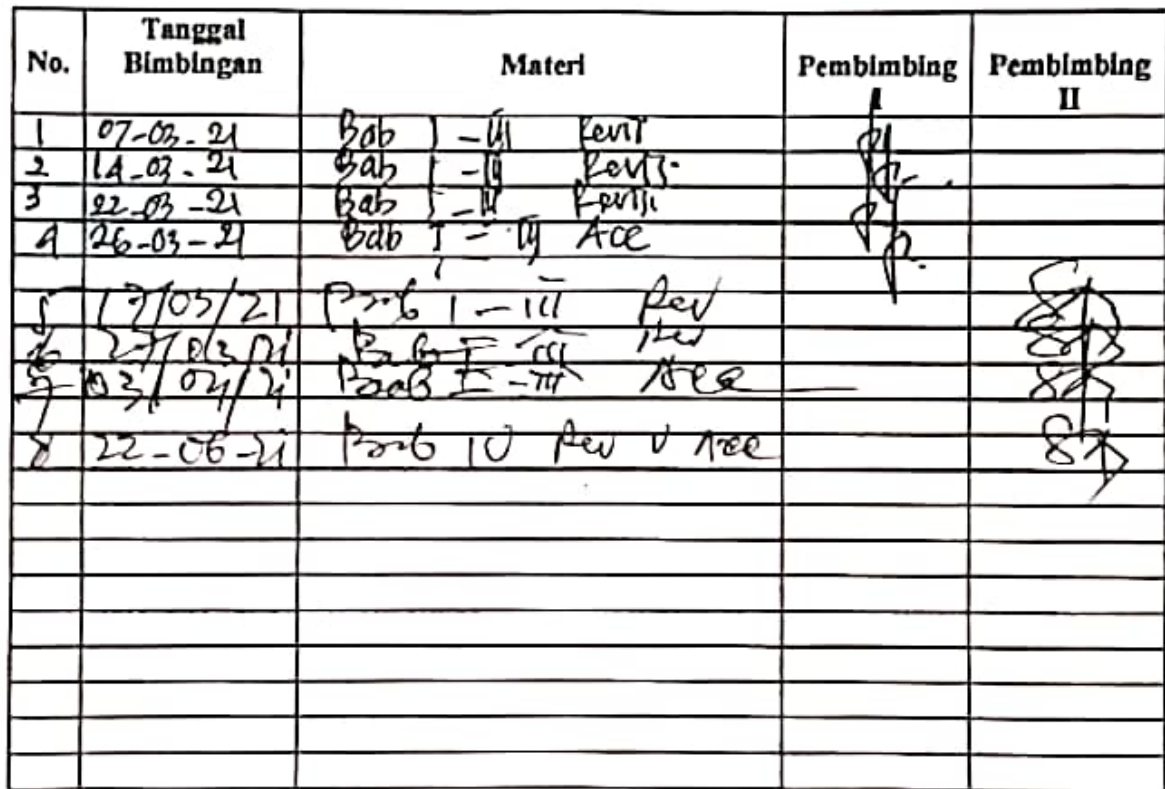 No. Tanggal Bimbingan Materi Pembimbing I Pembimbing II
1 07-03-21 Bab I - III Revisi
2 14-03-21 Bab I - III Revisi
3 22-03-21 Bab I - III Revisi
4 26-03-21 Bab I - III Acc
5 17/03/21 Bab I - III Rev
6 27/03/21 Bab I - III Rev
7 03/04/21 Bab I - III Acc
8 22-06-21 Bab IV Rev V Acc